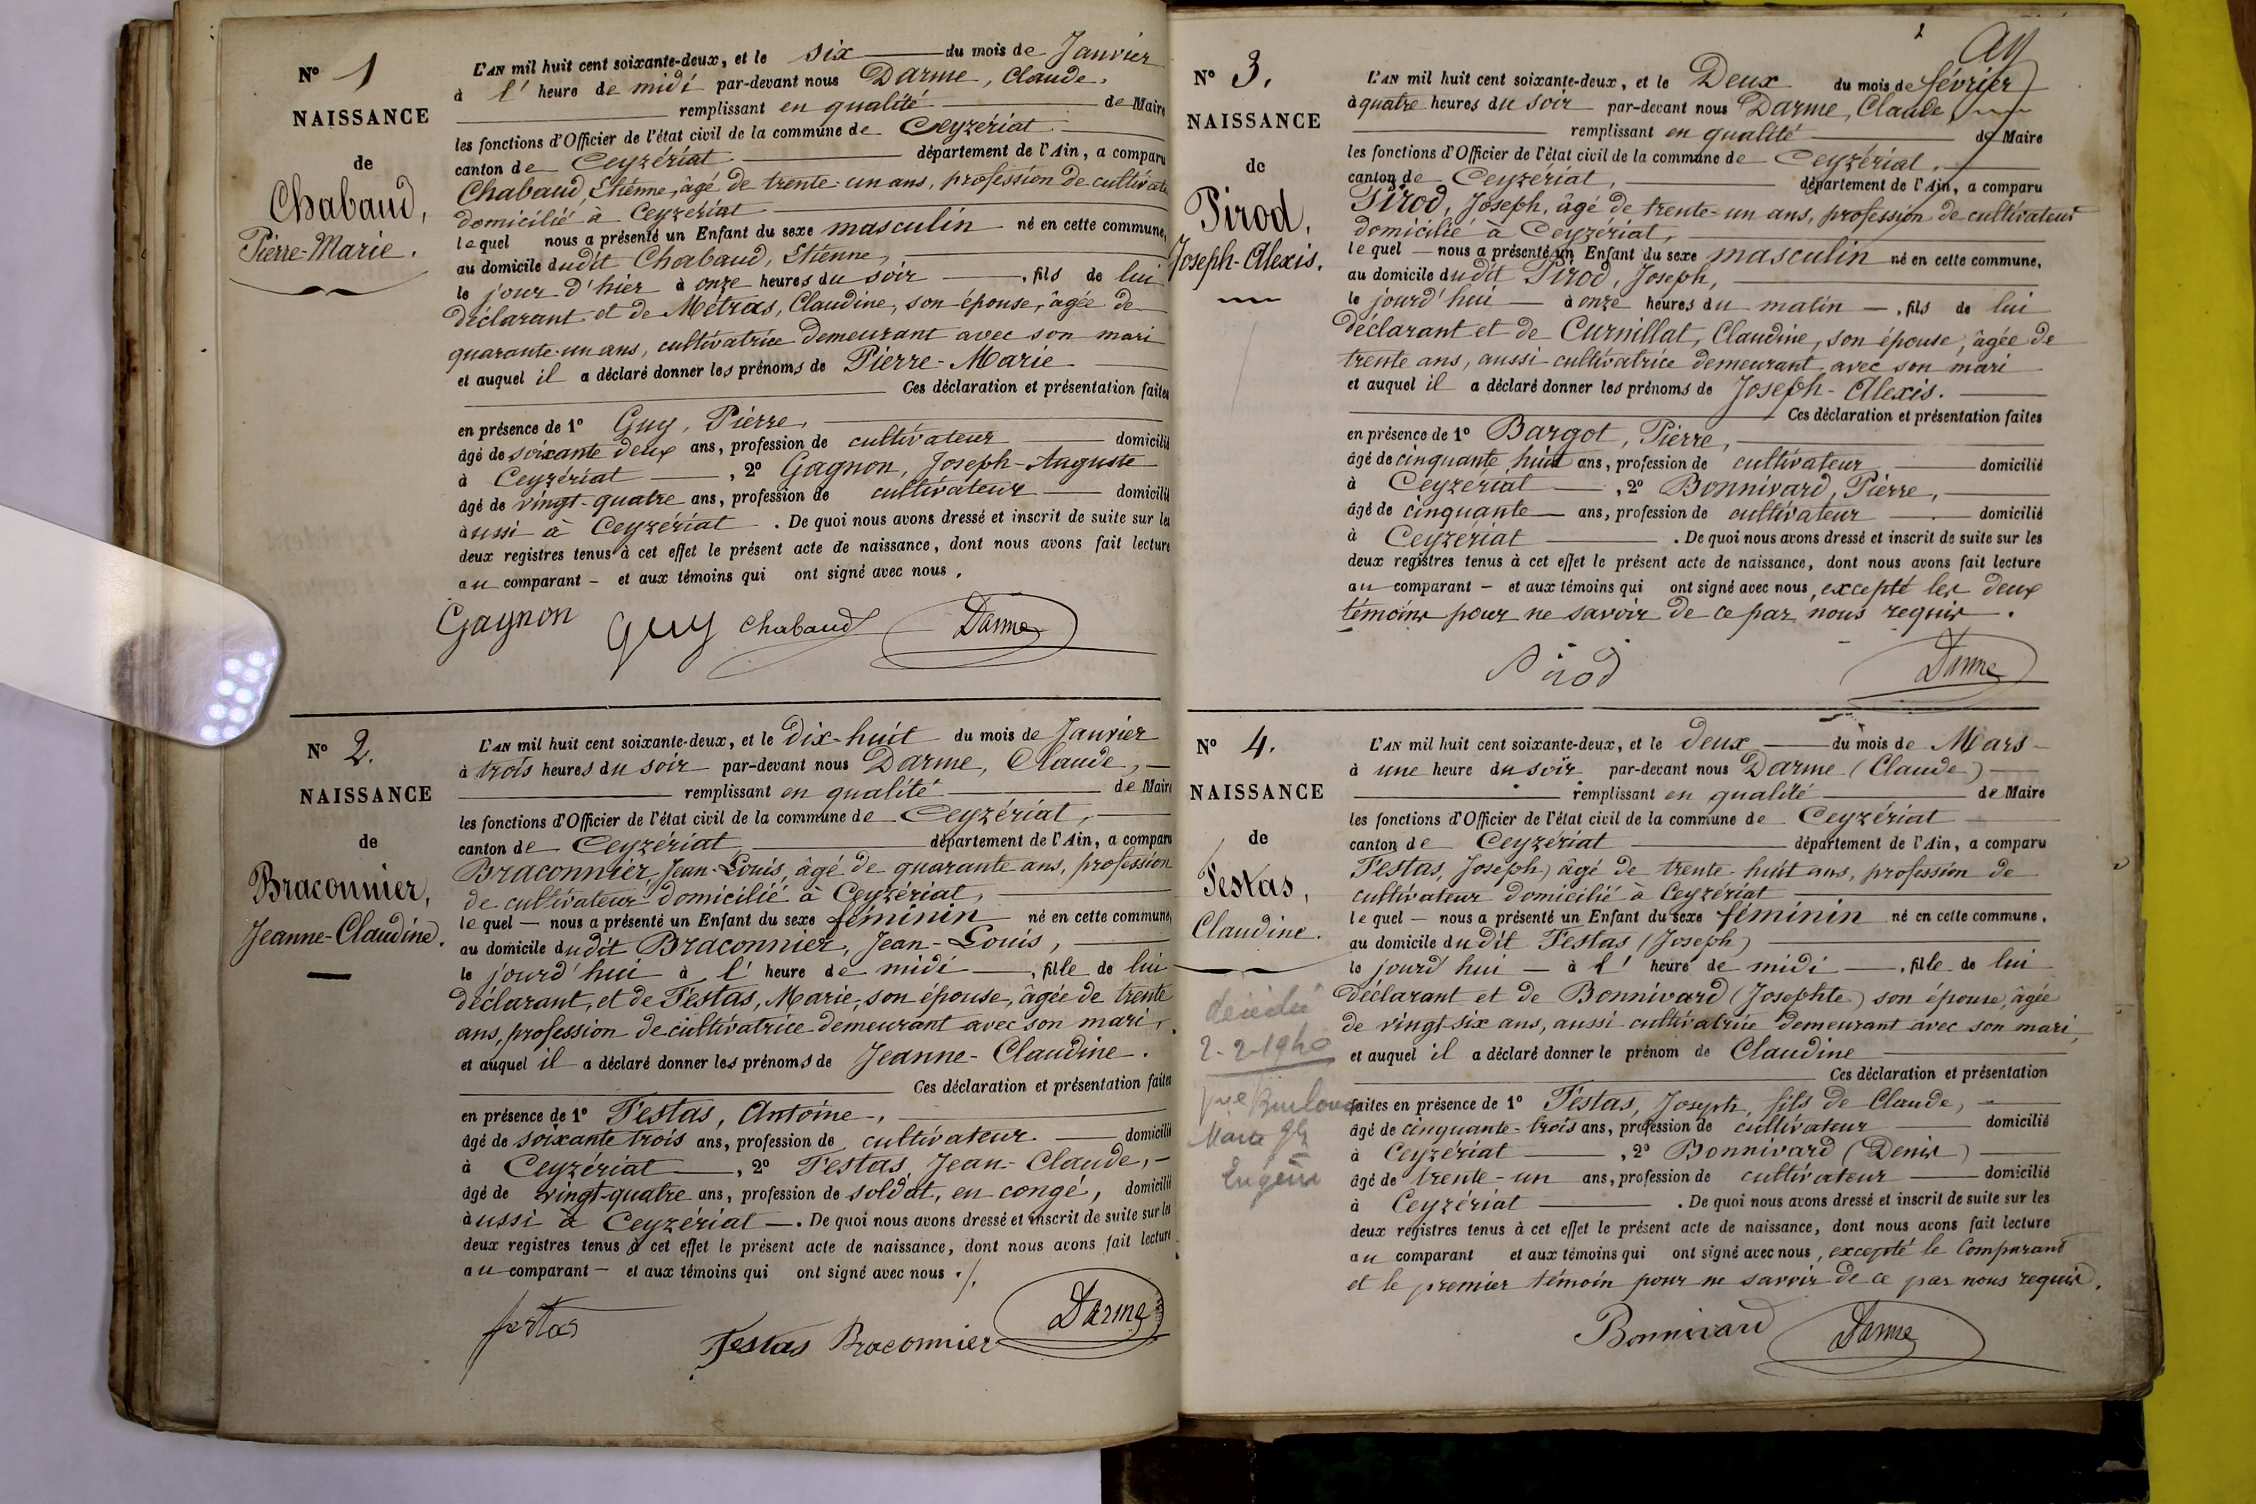 N° 1
NAISSANCE
de
Chabaud,
Pierre-Marie.
L'AN mil huit cent soixante-deux, et le six du mois de Janvier
à l' heure de midi par-devant nous Darme, Claude,
remplissant en qualité de Maire
les fonctions d'Officier de l'état civil de la commune de Ceyzériat
canton de Ceyzériat département de l'Ain, a comparu
Chabaud, Etienne, âgé de trente-un ans, profession de cultivate
domicilié à Ceyzériat
lequel nous a présenté un Enfant du sexe masculin né en cette commune,
au domicile dudit Chabaud, Etienne,
le jour d'hier à onze heures du soir , fils de lui
déclarant et de Métras, Claudine, son épouse, âgée de
quarante-un ans, cultivatrice demeurant avec son mari
et auquel il a déclaré donner les prénoms de Pierre-Marie
Ces déclaration et présentation faites
en présence de 1° Guy, Pierre,
âgé de soixante deux ans, profession de cultivateur domicilié
à Ceyzériat , 2° Gagnon, Joseph-Auguste
âgé de vingt-quatre ans, profession de cultivateur domicilié
aussi à Ceyzériat . De quoi nous avons dressé et inscrit de suite sur les
deux registres tenus à cet effet le présent acte de naissance, dont nous avons fait lecture
au comparant - et aux témoins qui ont signé avec nous.
Gagnon Guy Chabaud Darme
N° 2.
NAISSANCE
de
Braconnier,
Jeanne-Claudine.
L'AN mil huit cent soixante-deux, et le dix-huit du mois de Janvier
à trois heures du soir par-devant nous Darme, Claude,
remplissant en qualité de Maire
les fonctions d'Officier de l'état civil de la commune de Ceyzériat,
canton de Ceyzériat, département de l'Ain, a comparu
Braconnier, Jean-Louis, âgé de quarante ans, profession
de cultivateur domicilié à Ceyzériat,
lequel — nous a présenté un Enfant du sexe féminin né en cette commune,
au domicile dudit Braconnier, Jean-Louis,
le jourd'hui à l' heure de midi , fille de lui
déclarant, et de Festas, Marie, son épouse, âgée de trente
ans, profession de cultivatrice demeurant avec son mari,
et auquel il a déclaré donner les prénoms de Jeanne-Claudine.
Ces déclaration et présentation faites
en présence de 1° Festas, Antoine,
âgé de soixante trois ans, profession de cultivateur domicilié
à Ceyzériat , 2° Festas, Jean-Claude,
âgé de vingt-quatre ans, profession de soldat, en congé, domicilié
aussi à Ceyzériat —. De quoi nous avons dressé et inscrit de suite sur les
deux registres tenus à cet effet le présent acte de naissance, dont nous avons fait lecture
au comparant — et aux témoins qui ont signé avec nous ./.
festas Festas Braconnier Darme
N° 3.
NAISSANCE
de
Pirod,
Joseph-Alexis.
L'AN mil huit cent soixante-deux, et le Deux du mois de février
à quatre heures du soir par-devant nous Darme, Claude,
remplissant en qualité de Maire
les fonctions d'Officier de l'état civil de la commune de Ceyzériat,
canton de Ceyzériat, département de l'Ain, a comparu
Pirod, Joseph, âgé de trente-un ans, profession de cultivateur
domicilié à Ceyzériat,
lequel — nous a présenté un Enfant du sexe masculin né en cette commune,
au domicile dudit Pirod, Joseph,
le jourd'hui — à onze heures du matin —, fils de lui
déclarant et de Curnillat, Claudine, son épouse, âgée de
trente ans, aussi cultivatrice demeurant avec son mari
et auquel il a déclaré donner les prénoms de Joseph-Alexis.
Ces déclaration et présentation faites
en présence de 1° Bargot, Pierre,
âgé de cinquante huit ans, profession de cultivateur domicilié
à Ceyzériat , 2° Bonnivard, Pierre,
âgé de cinquante ans, profession de cultivateur domicilié
à Ceyzériat . De quoi nous avons dressé et inscrit de suite sur les
deux registres tenus à cet effet le présent acte de naissance, dont nous avons fait lecture
au comparant — et aux témoins qui ont signé avec nous, excepté les deux
témoins pour ne savoir de ce par nous requis.
Pirod Darme
N° 4.
NAISSANCE
de
Festas,
Claudine.
décédée
2-2-1940
L'AN mil huit cent soixante-deux, et le deux du mois de Mars
à une heure du soir par-devant nous Darme (Claude)
remplissant en qualité de Maire
les fonctions d'Officier de l'état civil de la commune de Ceyzériat
canton de Ceyzériat département de l'Ain, a comparu
Festas, Joseph, âgé de trente-huit ans, profession de
cultivateur domicilié à Ceyzériat
lequel — nous a présenté un Enfant du sexe féminin né en cette commune,
au domicile dudit Festas (Joseph)
le jourd'hui — à l' heure de midi —, fille de lui
déclarant et de Bonnivard (Josephte) son épouse, âgée
de vingt-six ans, aussi cultivatrice demeurant avec son mari,
et auquel il a déclaré donner le prénom de Claudine
Ces déclaration et présentation
faites en présence de 1° Festas, Joseph, fils de Claude,
âgé de cinquante-trois ans, profession de cultivateur domicilié
à Ceyzériat , 2° Bonnivard (Denis)
âgé de trente-un ans, profession de cultivateur domicilié
à Ceyzériat . De quoi nous avons dressé et inscrit de suite sur les
deux registres tenus à cet effet le présent acte de naissance, dont nous avons fait lecture
au comparant et aux témoins qui ont signé avec nous, excepté le Comparant
et le premier témoin pour ne savoir de ce par nous requis.
Bonnivard Darme